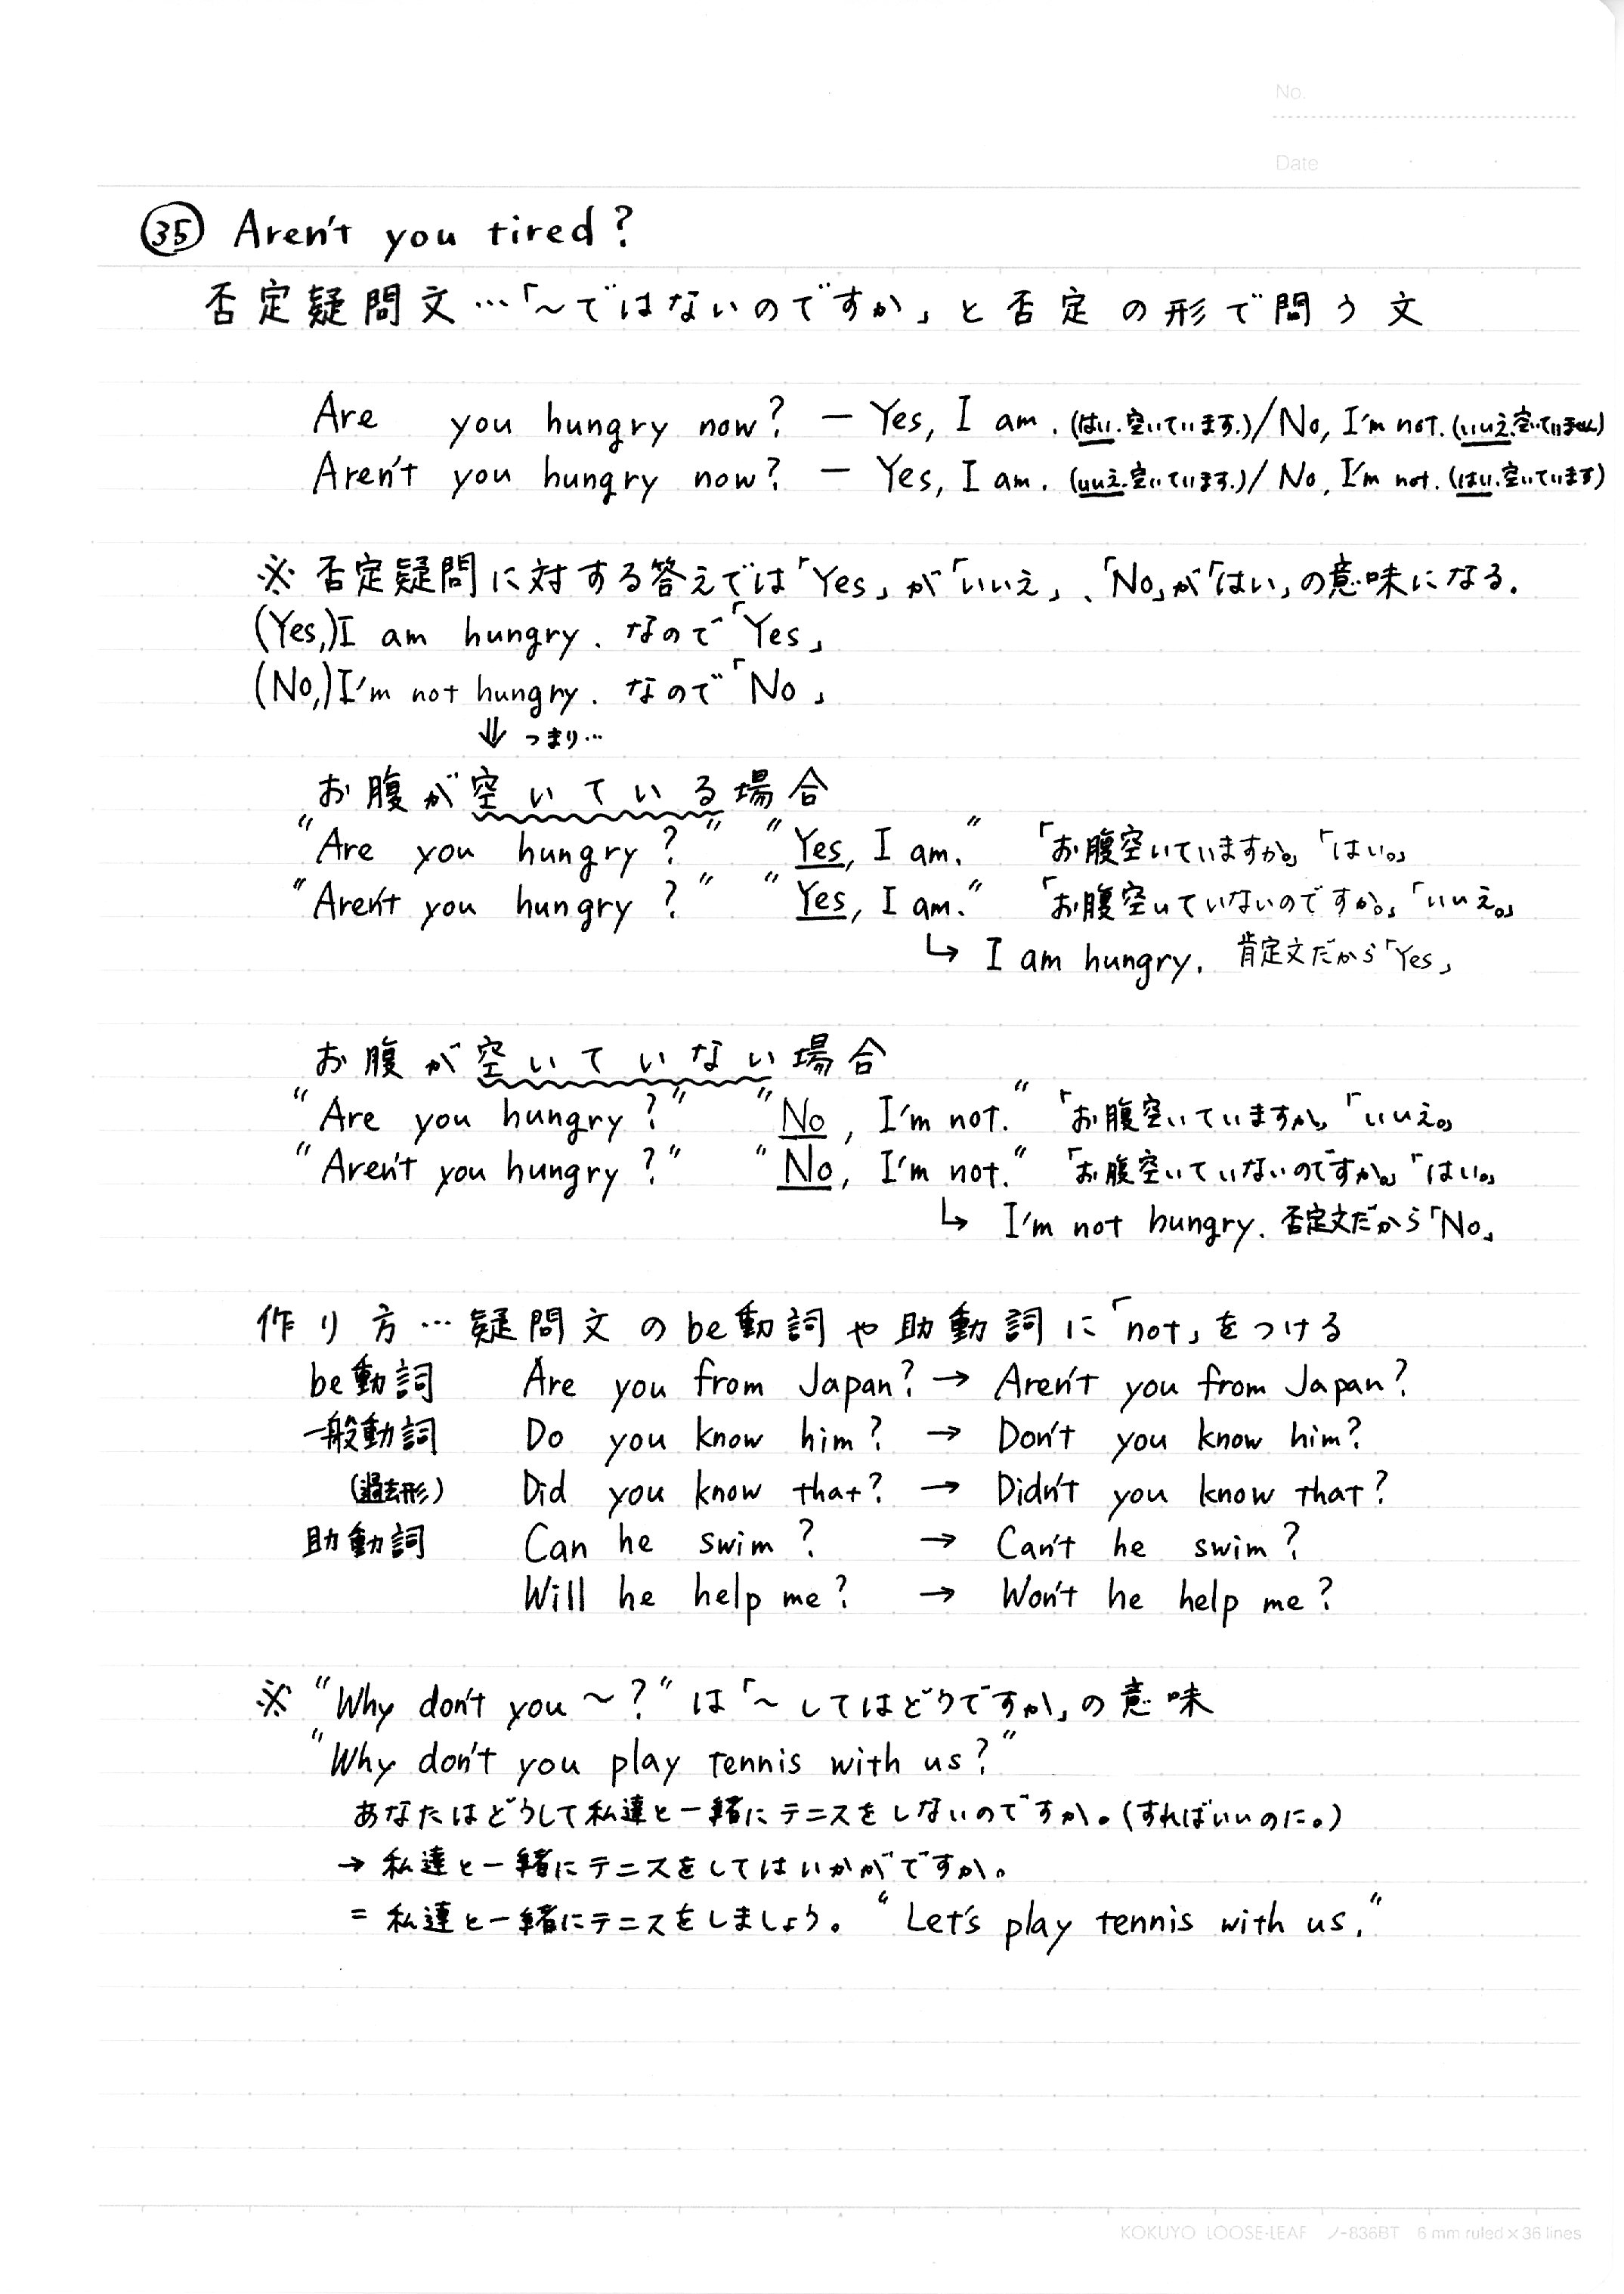 No.
Date
㉟ Aren't you tired?
否定疑問文…「～ではないのですか」と否定の形で問う文
Are you hungry now? — Yes, I am. (はい.空いています.) / No, I'm not. (いいえ.空いていません)
Aren't you hungry now? — Yes, I am. (いいえ.空いています.) / No, I'm not. (はい.空いています)
※ 否定疑問に対する答えでは「Yes」が「いいえ」、「No」が「はい」の意味になる.
(Yes,) I am hungry. なので「Yes」
(No,) I'm not hungry. なので「No」
⇓ つまり…
お腹が空いている場合
"Are you hungry?" "Yes, I am." 「お腹空いていますか。」「はい。」
"Aren't you hungry?" "Yes, I am." 「お腹空いていないのですか。」「いいえ。」
↳ I am hungry. 肯定文だから「Yes」
お腹が空いていない場合
"Are you hungry?" "No, I'm not." 「お腹空いていますか」「いいえ。」
"Aren't you hungry?" "No, I'm not." 「お腹空いていないのですか。」「はい。」
↳ I'm not hungry. 否定文だから「No」
作り方…疑問文のbe動詞や助動詞に「not」をつける
be動詞 Are you from Japan? → Aren't you from Japan?
一般動詞 Do you know him? → Don't you know him?
(過去形) Did you know that? → Didn't you know that?
助動詞 Can he swim? → Can't he swim?
Will he help me? → Won't he help me?
※ "Why don't you ～?" は「～してはどうですか」の意味
"Why don't you play tennis with us?"
あなたはどうして私達と一緒にテニスをしないのですか。(すればいいのに。)
→ 私達と一緒にテニスをしてはいかがですか。
= 私達と一緒にテニスをしましょう。 "Let's play tennis with us."
KOKUYO LOOSE-LEAF ノ-836BT 6 mm ruled × 36 lines